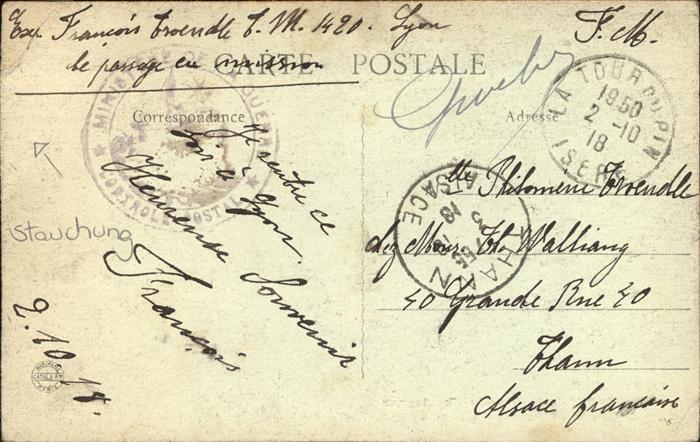 Exp. François Troendle T. M. 1420. Lyon
de passage en mission
F. M.
CARTE POSTALE
Correspondance
Adresse
MINISTÈRE DE LA GUERRE
CONTRÔLE POSTAL
LA TOUR-DU-PIN
19 50
2 -10
18
ISERE
Je rentre ce
soir à Lyon.
Heureuse Souvenir
François
2. 10. 18.
Stauchung
Mlle Philomène Troendle
chez Mme Th. Walliang
40 Grande Rue 40
Thann
Alsace française
THANN
ALSACE
18